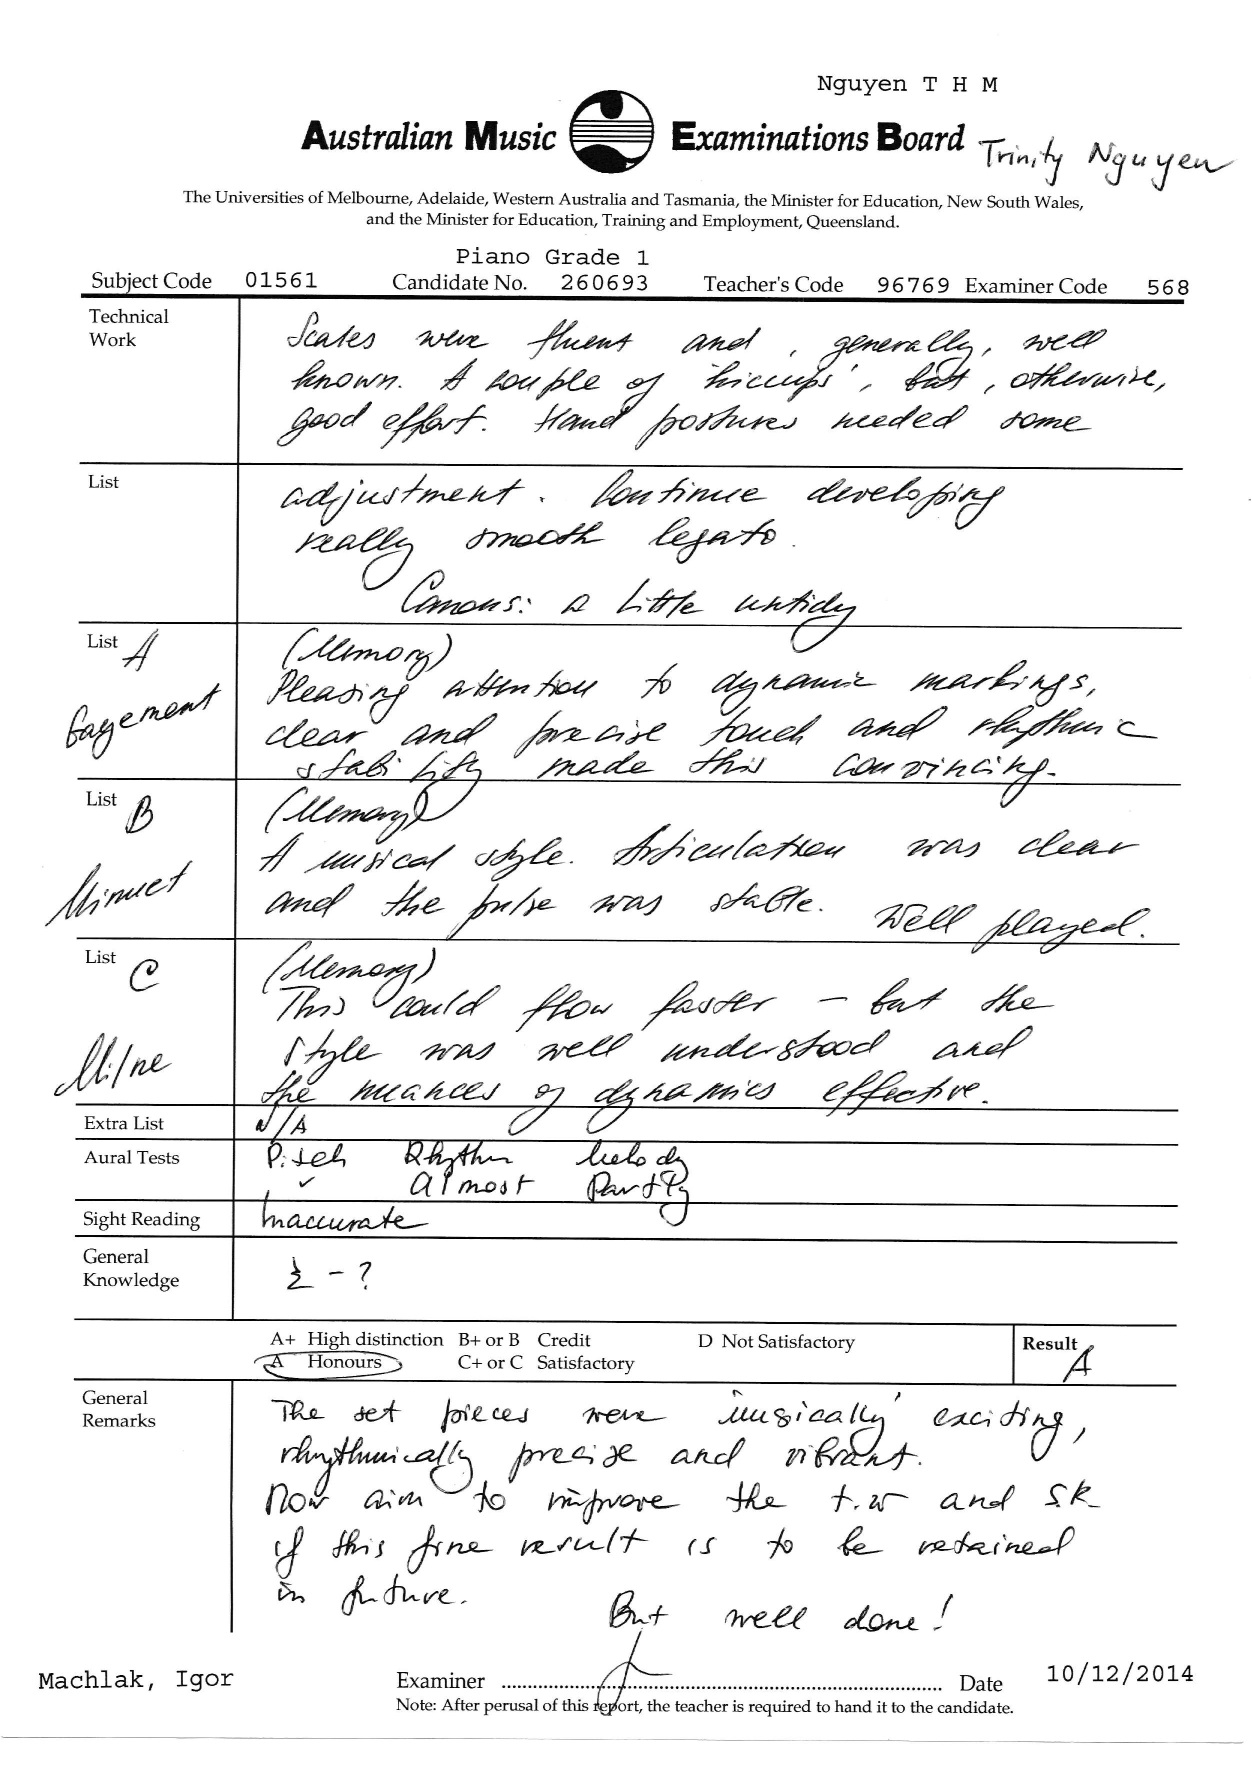 Nguyen T H M
Australian Music Examinations Board
Trinity Nguyen
The Universities of Melbourne, Adelaide, Western Australia and Tasmania, the Minister for Education, New South Wales,
and the Minister for Education, Training and Employment, Queensland.
Piano Grade 1
Subject Code 01561 Candidate No. 260693 Teacher's Code 96769 Examiner Code 568
Technical
Work
Scales were fluent and, generally, well
known. A couple of 'hiccups', but, otherwise,
good effort. Hand postures needed some
List
adjustment. Continue developing
really smooth legato.
Canons: a little untidy
List A
Gagement
(Memory)
Pleasing attention to dynamic markings,
clear and precise touch and rhythmic
stability made this convincing.
List B
Minuet
(Memory)
A musical style. Articulation was clear
and the pulse was stable. Well played.
List C
Milne
(Memory)
This could flow faster – but the
style was well understood and
the nuances of dynamics effective.
Extra List N/A
Aural Tests
Pitch Rhythm Melody
✓ almost Partly
Sight Reading Inaccurate
General
Knowledge
– ?
A+ High distinction B+ or B Credit D Not Satisfactory
A Honours C+ or C Satisfactory
Result A
General
Remarks
The set pieces were 'musically' exciting,
rhythmically precise and vibrant.
Now aim to improve the t.w and S.R
if this fine result is to be retained
in future.
But well done!
Machlak, Igor
Examiner Date 10/12/2014
Note: After perusal of this report, the teacher is required to hand it to the candidate.